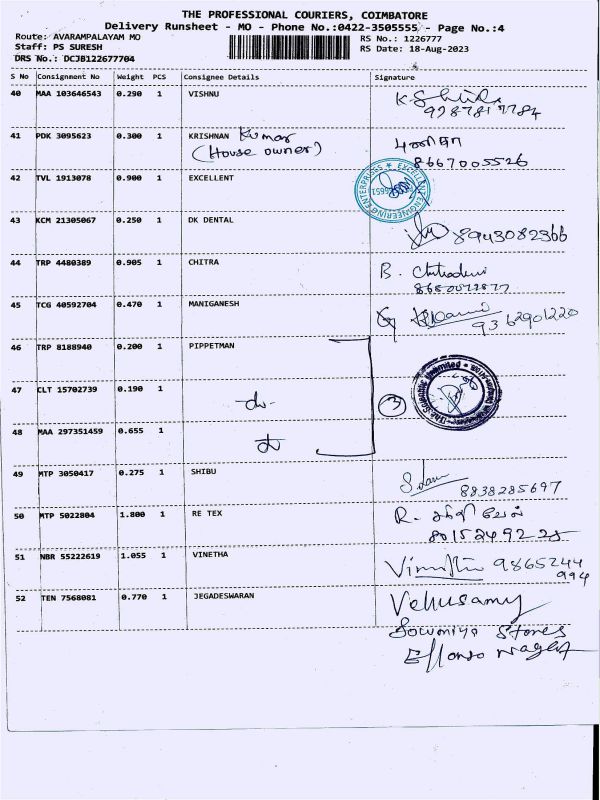 THE PROFESSIONAL COURIERS, COIMBATORE
Delivery Runsheet - MO - Phone No.:0422-3505555 - Page No.:4
Route: AVARAMPALAYAM MO RS No.: 1226777
Staff: PS SURESH RS Date: 18-Aug-2023
DRS No.: DCJB122677704
S No Consignment No Weight PCS Consignee Details Signature
40 MAA 103646543 0.290 1 VISHNU
41 PDK 3095623 0.300 1 KRISHNAN Kumar
(House owner)
8667005526
42 TVL 1913078 0.900 1 EXCELLENT
EXCELLENT ENGINEERING ENTERPRISES
43 KCM 21305067 0.250 1 DK DENTAL 8943082366
44 TRP 4480389 0.905 1 CHITRA B. Chitradevi
45 TCG 40592704 0.470 1 MANIGANESH
9362901220
46 TRP 8188940 0.200 1 PIPPETMAN
47 CLT 15702739 0.190 1 -do- 3
48 MAA 297351459 0.655 1 do
49 MTP 3050417 0.275 1 SHIBU
8838285697
50 MTP 5022804 1.800 1 RE TEX R.
51 NBR 55222619 1.055 1 VINETHA 9865244
994
52 TEN 7568081 0.770 1 JEGADESWARAN Velusamy
Sowmiya Stores